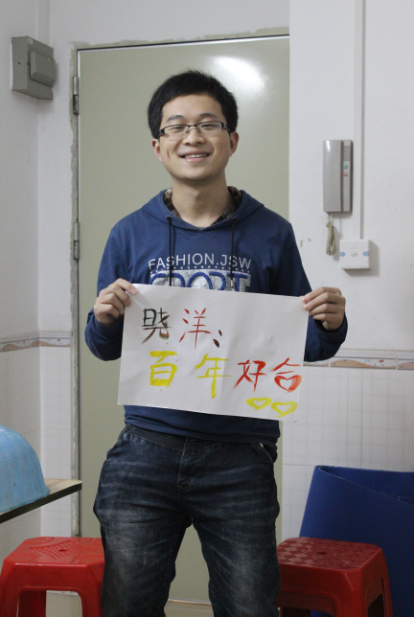 FASHION.JSW
SPORT
晓洋：
百年好合